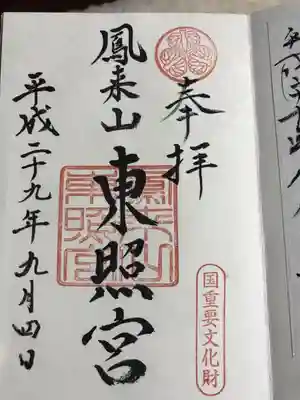 奉拝
国重要文化財
鳳来山東照宮
平成二十九年九月四日